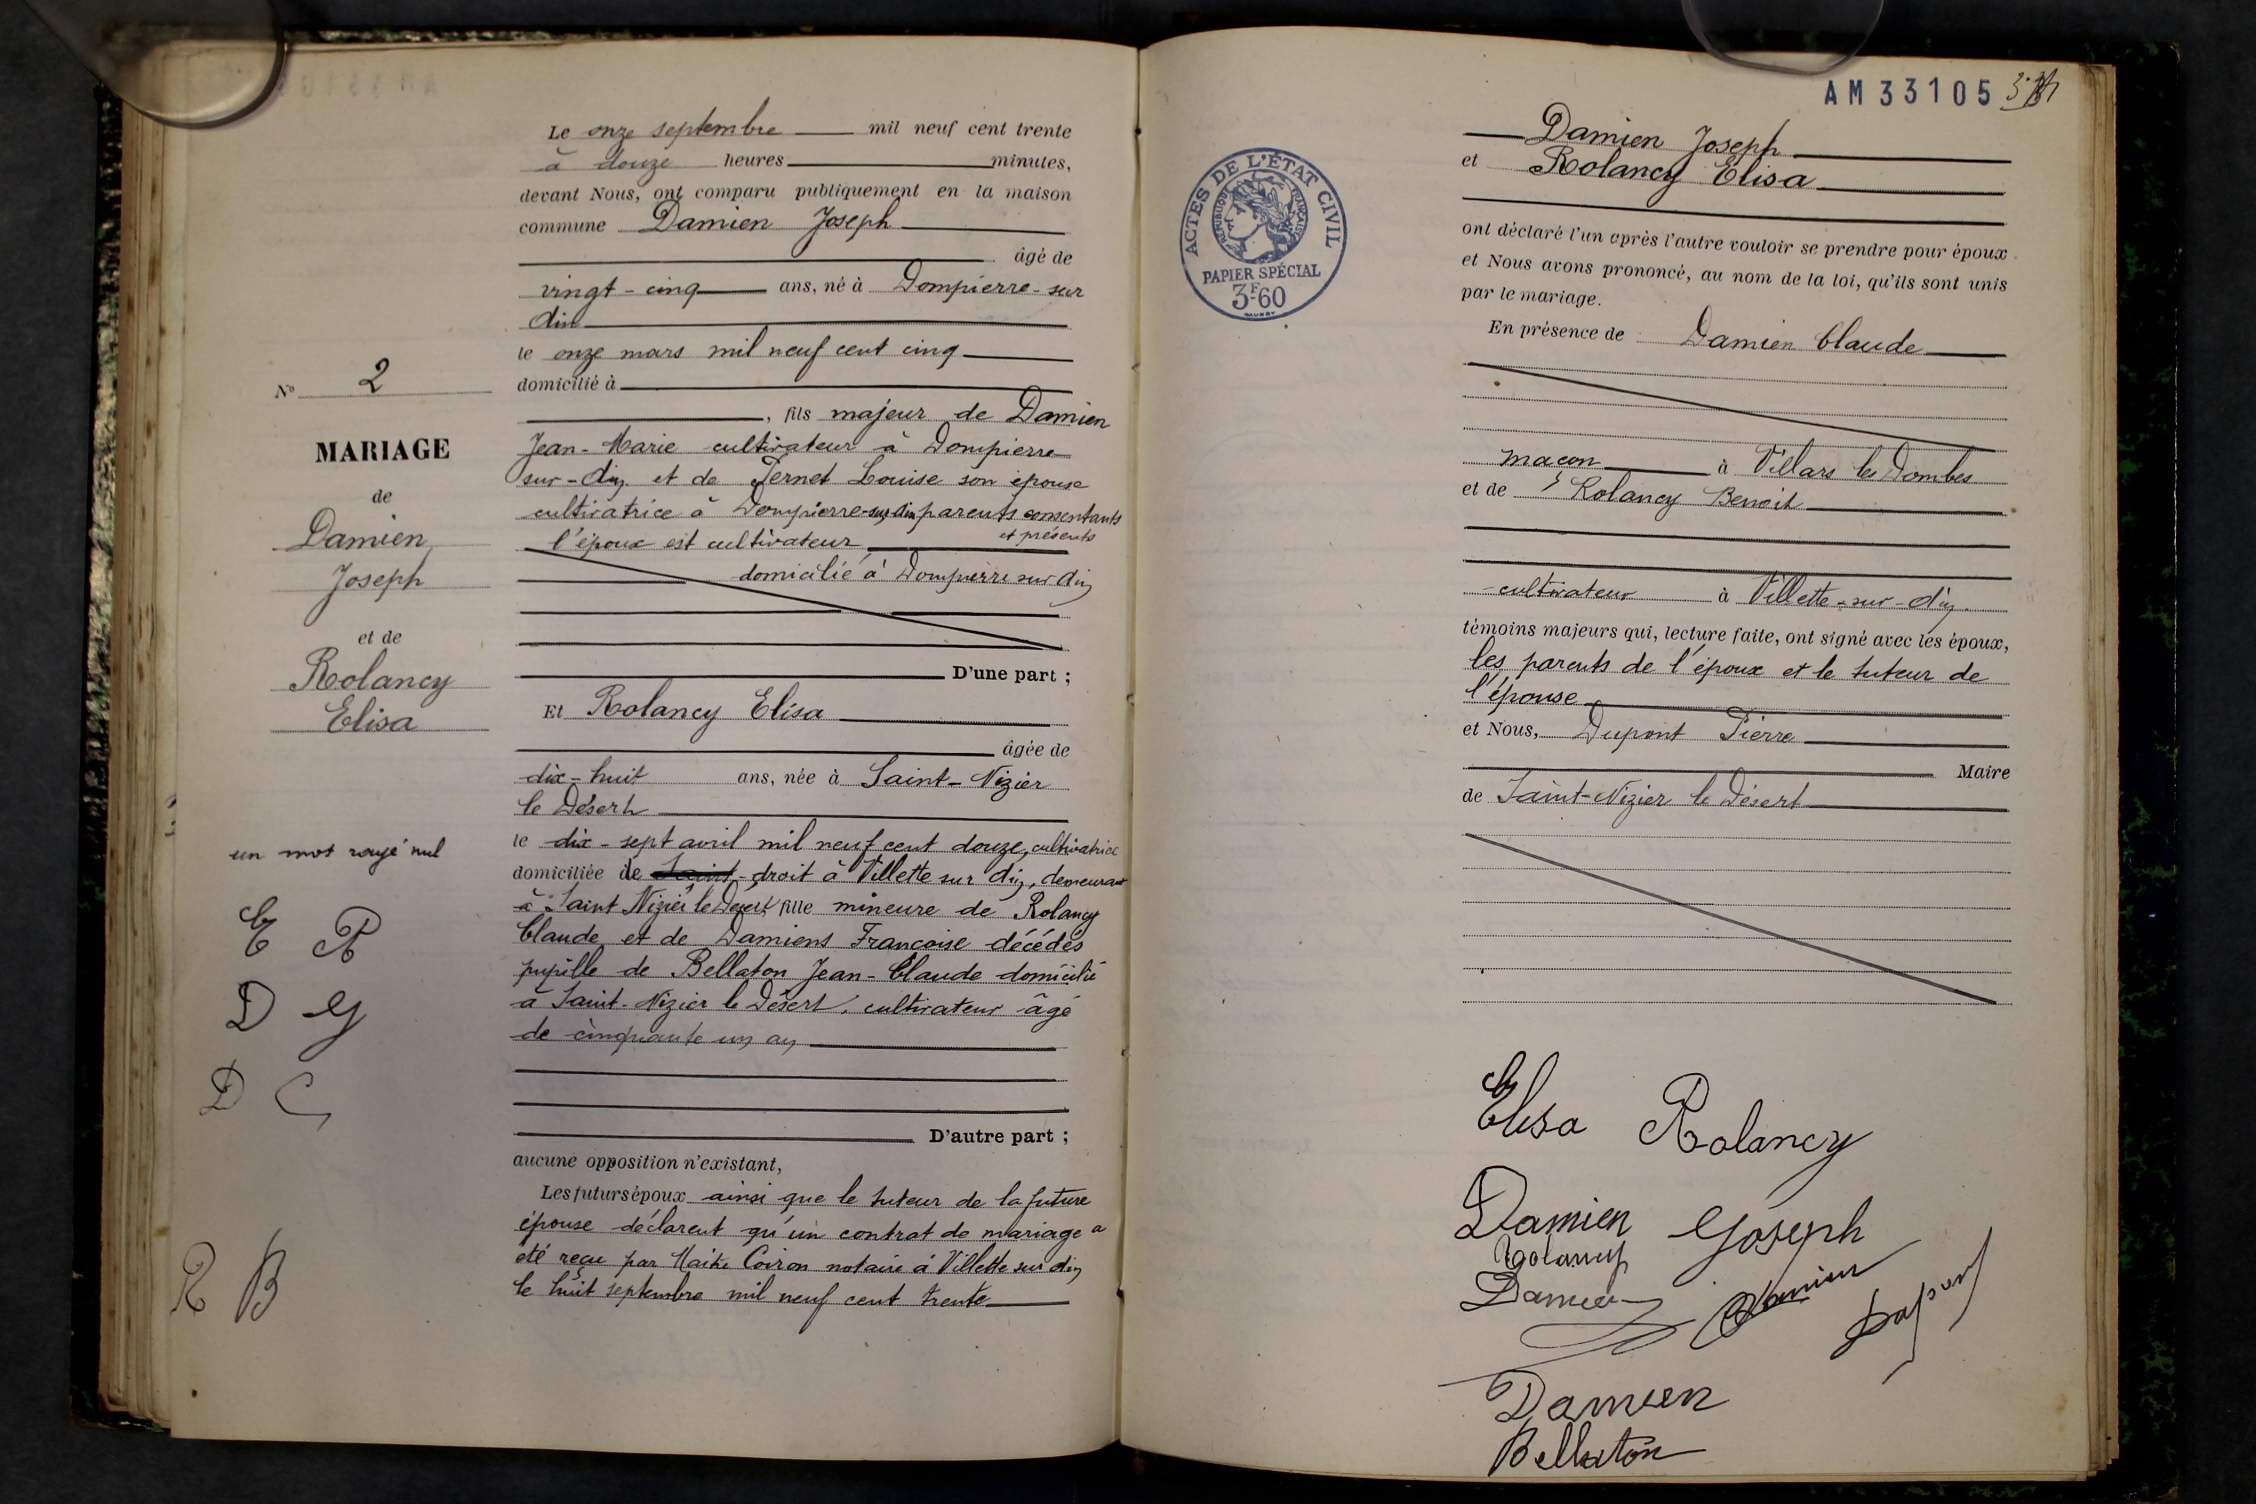 Le onze septembre mil neuf cent trente
à douze heures minutes,
devant Nous, ont comparu publiquement en la maison
commune Damien Joseph
âgé de
vingt-cinq ans, né à Dompierre-sur
le onze mars mil neuf cent cinq
domicilié à
, fils majeur de Damien
Jean-Marie cultivateur à Dompierre
sur-Ain et de Ternet Louise son épouse
cultivatrice à Dompierre-sur-Ain parents consentants
et présents
l'époux est cultivateur
domicilié à Dompierre sur Ain
D'une part ;
Et Rolancy Elisa
âgée de
dix-huit ans, née à Saint-Nizier
le Désert
le dix-sept avril mil neuf cent douze, cultivatrice
domiciliée de droit à Villette sur Ain, demeurant
à Saint Nizier le Désert, fille mineure de Rolancy
Claude et de Damiens Françoise décédés
pupille de Bellaton Jean-Claude domicilié
à Saint-Nizier le Désert, cultivateur âgé
de cinquante un an
D'autre part ;
aucune opposition n'existant,
Les futurs époux ainsi que le tuteur de la future
épouse déclarent qu'un contrat de mariage a
été reçu par Maître Coiron notaire à Villette sur Ain
le huit septembre mil neuf cent trente
N° 2
MARIAGE
de
Damien
Joseph
et de
Rolancy
Elisa
un mot rayé nul
E R
D J
D C
R B
AM33105
ACTES DE L'ÉTAT CIVIL
RÉPUBLIQUE FRANÇAISE
PAPIER SPÉCIAL
3F60
Damien Joseph
et Rolancy Elisa
ont déclaré l'un après l'autre vouloir se prendre pour époux
et Nous avons prononcé, au nom de la loi, qu'ils sont unis
par le mariage.
En présence de Damien Claude
maçon à Villars les Dombes
et de Rolancy Benoit
cultivateur à Villette-sur-Ain
témoins majeurs qui, lecture faite, ont signé avec les époux,
les parents de l'époux et le tuteur de
l'épouse
et Nous, Dupont Pierre
Maire
de Saint-Nizier le Désert
Elisa Rolancy
Damien Joseph
Rolancy
Damien Damien Dupont
Damien
Bellaton